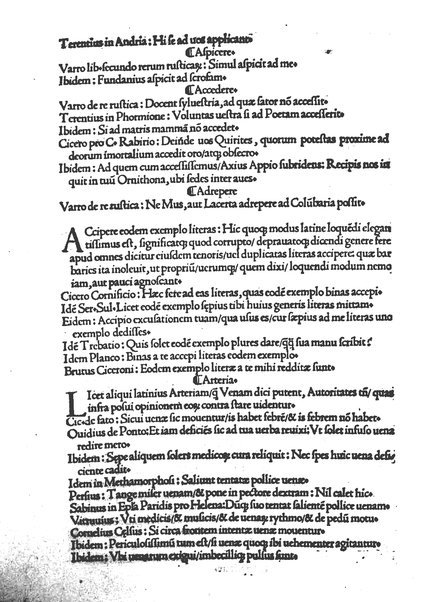 Terentius in Andria: Hi se ad uos applicant.
¶Aspicere.
Varro lib. secundo rerum rusticaꝝ: Simul aspicit ad me.
Ibidem: Fundanius aspicit ad scrofam.
¶Accedere.
Varro de re rustica: Docent syluestria, ad quæ sator nō accessit.
Terentius in Phormione: Voluntas uestra si ad Poetam accesserit.
Ibidem: Si ad matris mammā nō accedet.
Cicero pro C. Rabirio: Deinde uos Quirites, quorum potestas proxime ad
deorum ímortalium accedit oro/atqꝫ obsecro.
Ibidem: Ad quem cum accessissemus/Axius Appio subridens: Recipis nos in
quit in tuū Ornithona, ubi sedes inter aues.
¶Adrepere
Varro de re rustica: Ne Mus, aut Lacerta adrepere ad Colūbaria possit.
ACcipere eodem exemplo literas: Hic quoqꝫ modus latine loquēdi elegan
tissimus est, significatqꝫ quod corrupto/deprauatoqꝫ dicendi genere fere
apud omnes dicitur eiusdem tenoris/uel duplicatas literas accipere: quæ bar
baries ita inoleuit, ut propriū/uerumqꝫ/quem dixi/loquendi modum nemo
iam, aut pauci agnoscant.
Cicero Cornificio: Hæc fere ad eas literas, quas eodē exemplo binas accepi.
Idē Ser. Sul. Licet eodē exemplo sępius tibi huius generis literas mittam.
Eidem: Accipio excusationem tuam/qua usus es/cur sæpius ad me literas uno
exemplo dedisses.
Idē Trebatio: Quis solet eodē exemplo plures dare/qui sua manu scribit?
Idem Planco: Binas a te accepi literas eodem exemplo.
Brutus Ciceroni: Eodem exemplo literæ a te mihi redditæ sunt.
¶Arteria.
LIcet aliqui latinius Arteriam/ꝗ̄ Venam dici putent, Autoritates tñ/quas
infra posui opinionem eoꝝ contra stare uidentur.
Cic. de fato: Sicui uenæ sic mouentur/is habet febrē/& is febrem nō habet.
Ouidius de Ponto: Et iam deficiēs sic ad tua uerba reuixi: Vt solet infuso uena
redire mero.
Ibidem: Sepe aliquem solers medicoꝝ cura reliquit: Nec spes huic uena defi
ciente cadit.
Idem in Methamorphosi: Saliunt tentatæ pollice uenæ.
Persius: Tange miser uenam/& pone in pectore dextram: Nil calet hic.
Sabinus in Epła Paridis pro Helena: Dūqꝫ suo tentat salientē pollice uenam.
Vitruuius: Vti medicis/& musicis/& de uenaꝝ rythmo/& de pedū motu.
Cornelius Celsus: Si circa frontem intentæ uenæ mouentur.
Ibidem: Periculosissimū tum est/si uenæ quoqꝫ ibi uehementer agitantur.
Ibidem: Vbi uenarum exigui/imbecilliqꝫ pulsus sunt.